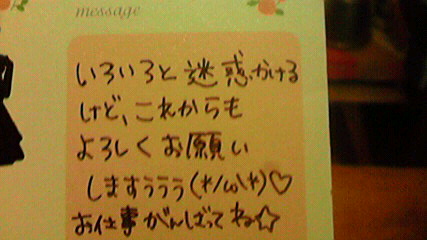 message
いろいろと迷惑かける
けど、これからも
よろしくお願い
しますぅぅぅ(*/ω\*)♡
お仕事がんばってね☆